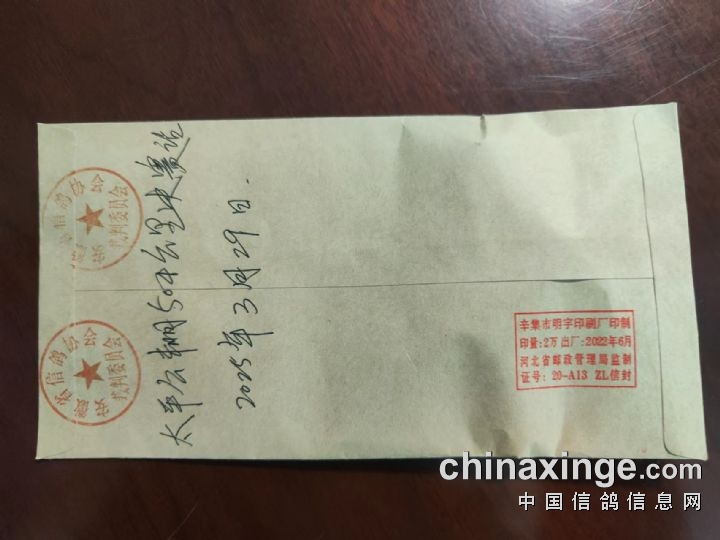 太平公棚504公里决赛
2025年3月29日.
裁判委员会
裁判委员会
辛集市明宇印刷厂印制
印量:2万 出厂:2022年6月
河北省邮政管理局监制
证号:20-A13 ZL信封
chinaxinge.com
中国信鸽信息网